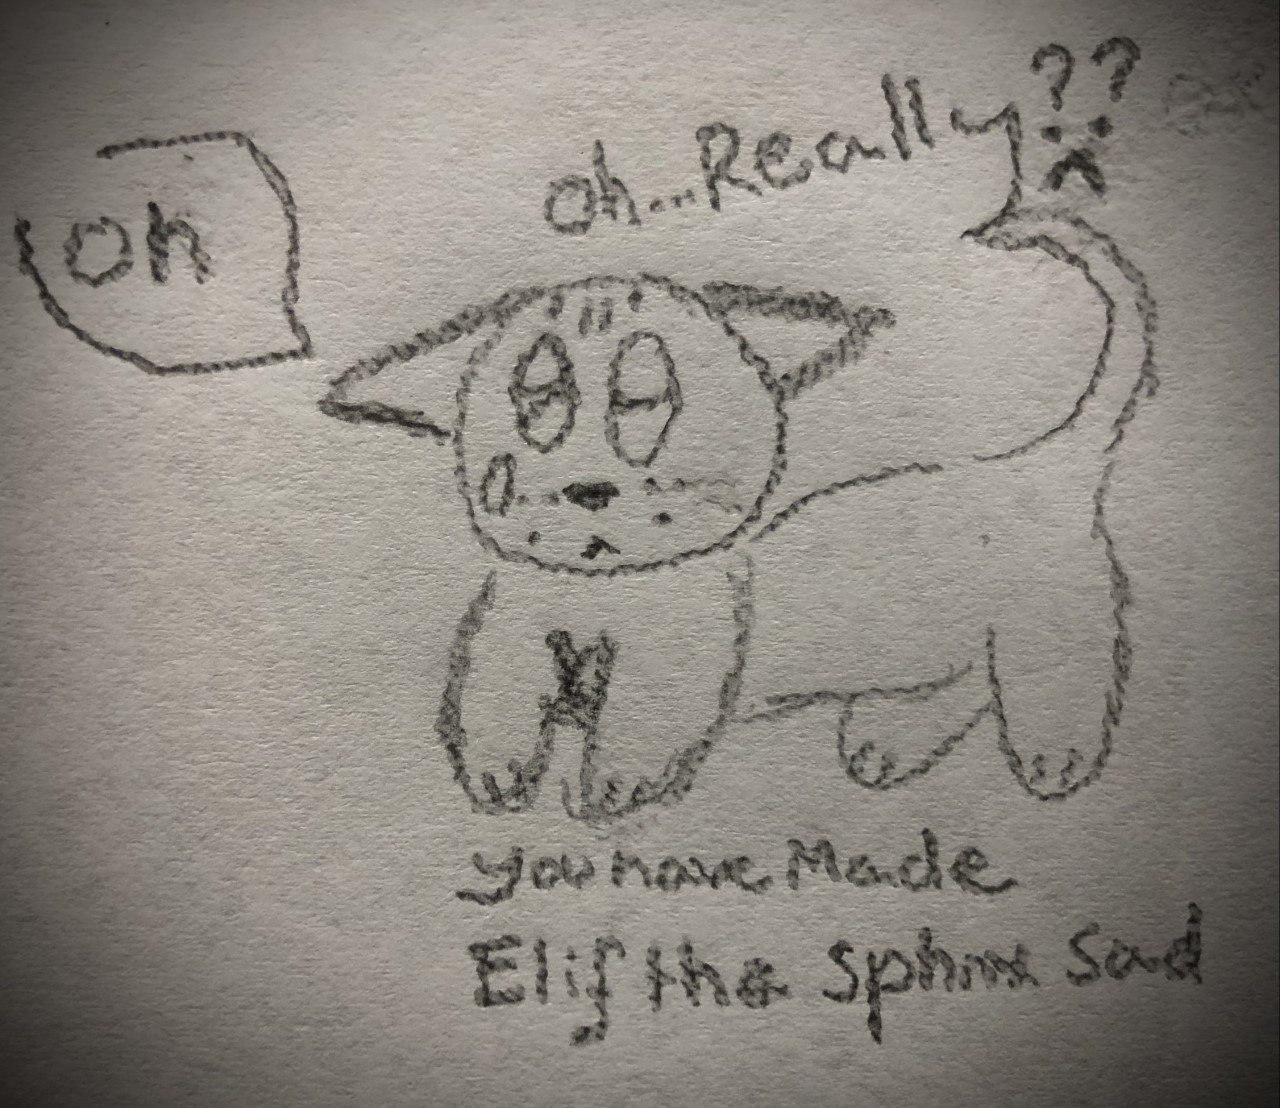 oh...Really??
oh
you have Made
Elif the Sphinx Sad